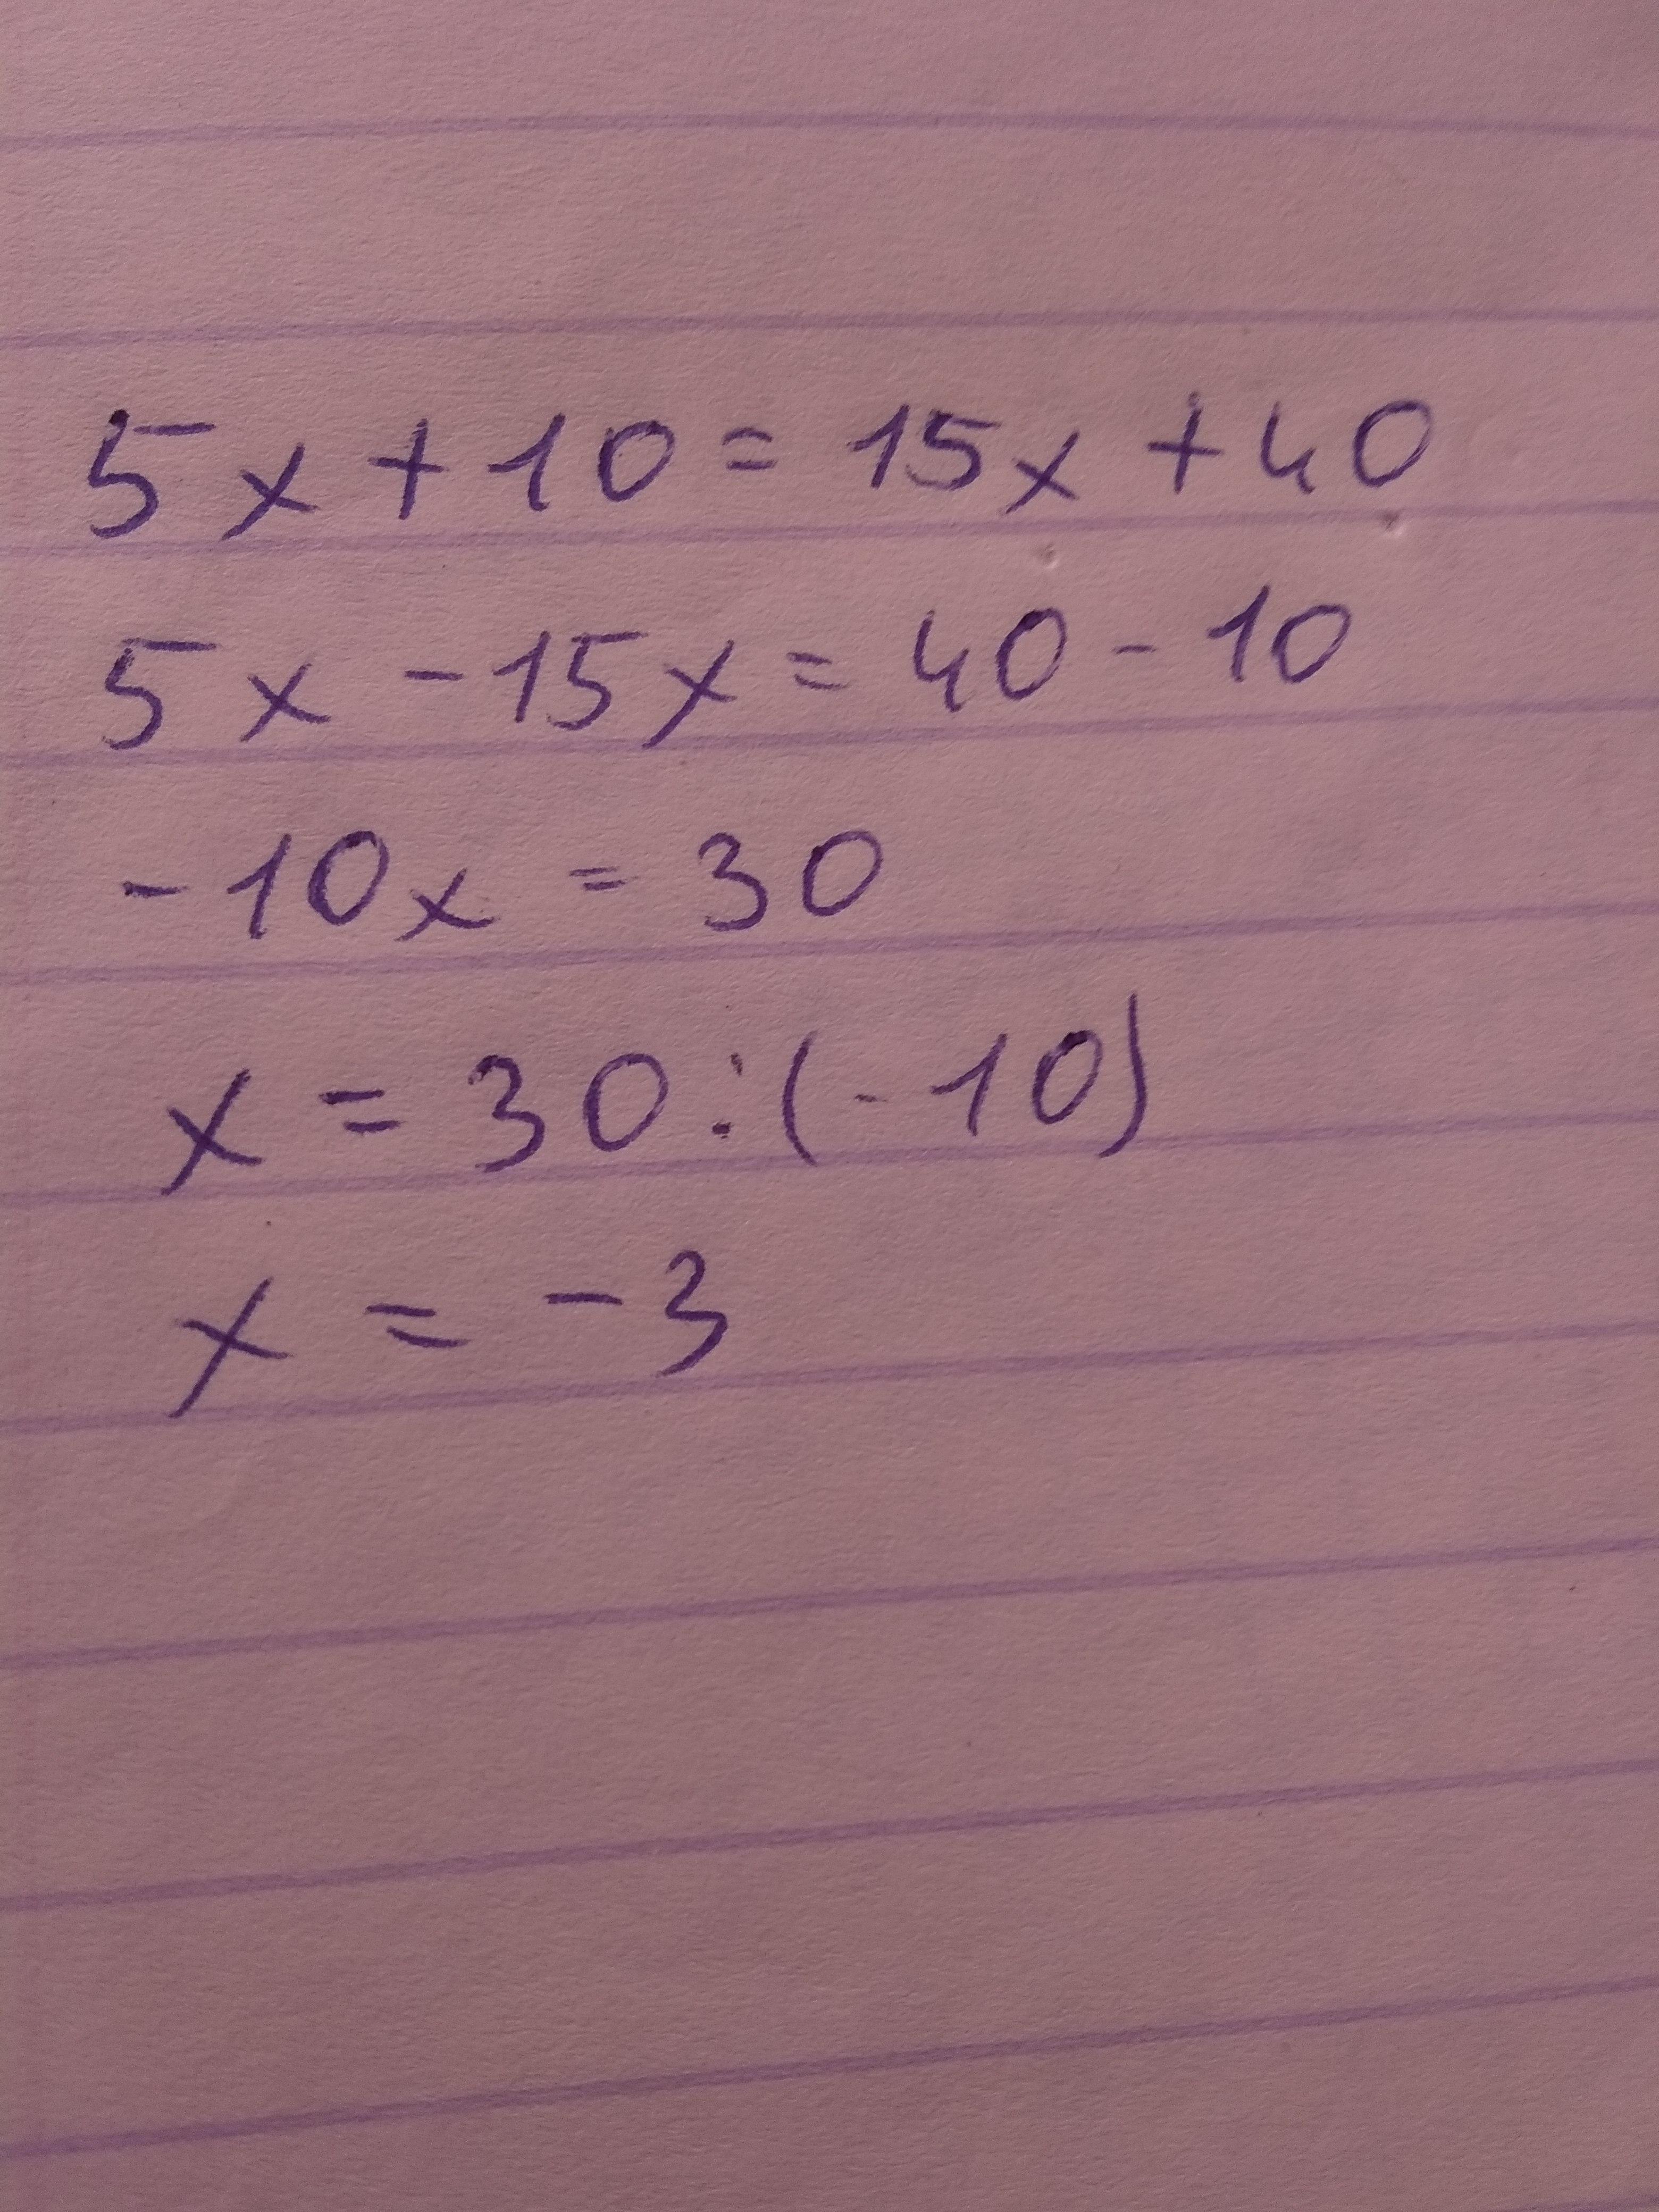 5x + 10 = 15x + 40
5x - 15x = 40 - 10
- 10x = 30
x = 30 : (- 10)
x = - 3